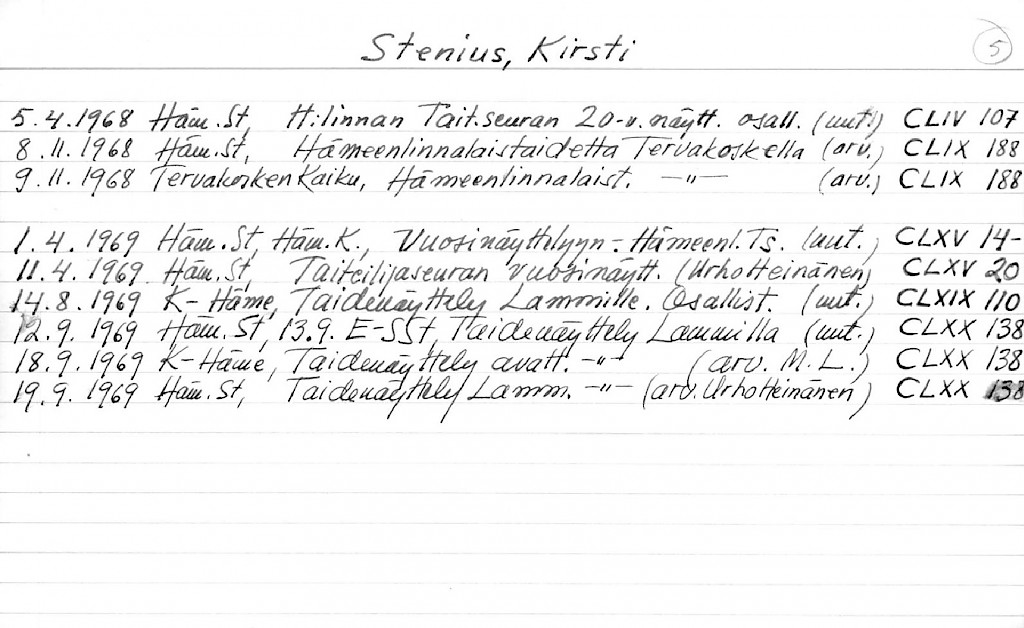 Stenius, Kirsti
5
5.4.1968 Häm.St, H:linnan Tait.seuran 20-v. näytt. osall. (uut.) CLIV 107
8.11.1968 Häm.St, Hämeenlinnalaistaidetta Tervakoskella (arv.) CLIX 188
9.11.1968 Tervakosken Kaiku, Hämeenlinnalaist. —"— (arv.) CLIX 188
1.4.1969 Häm.St, Häm.K., Vuosinäyttelyyn - Hämeenl. Ts. (uut.) CLXV 14-
11.4.1969 Häm.St, Taiteilijaseuran vuosinäytt. (Urho Heinänen) CLXV 20
14.8.1969 K-Häme, Taidenäyttely Lammille. Osallist. (uut.) CLXIX 110
12.9.1969 Häm.St, 13.9. E-SSt, Taidenäyttely Lammilla (uut.) CLXX 138
18.9.1969 K-Häme, Taidenäyttely avatt. -"- (arv. M.L.) CLXX 138
19.9.1969 Häm.St, Taidenäyttely Lamm. -"- (arv. Urho Heinänen) CLXX 138